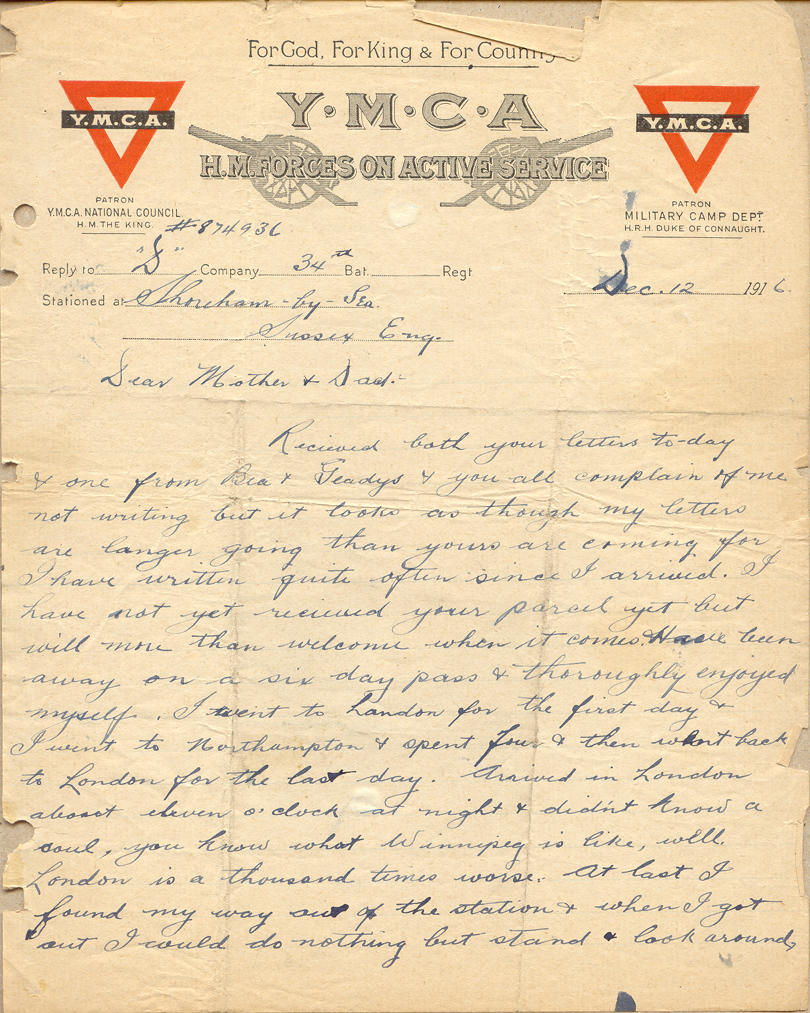 For God, For King & For Country
Y·M·C·A
H.M. FORCES ON ACTIVE SERVICE
Y.M.C.A.
Y.M.C.A.
PATRON
Y.M.C.A. NATIONAL COUNCIL
H.M. THE KING.
PATRON
MILITARY CAMP DEPT.
H.R.H. DUKE OF CONNAUGHT.
#874936
Reply to "D" Company 34th Bat. Regt
Stationed at Shoreham-by-Sea
Dec. 12 1916.
Sussex Eng.
Dear Mother & Dad:-
Recieved both your letters to-day
& one from Bea & Gladys & you all complain of me
not writing but it looks as though my letters
are longer going than yours are coming for
I have written quite often since I arrived. I
have not yet recieved your parcel yet but
will more than welcome when it comes. Have been
away on a six day pass & thoroughly enjoyed
myself. I went to London for the first day &
I went to Northampton & spent four & then went back
to London for the last day. Arrived in London
about eleven o'clock at night & didn't know a
soul, you know what Winnipeg is like, well.
London is a thousand times worse. At last I
found my way out of the station & when I got
out I could do nothing but stand & look around,